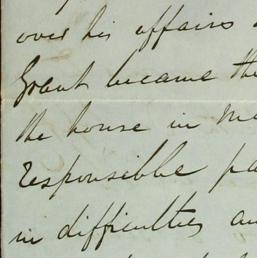 over his affairs
Grant became the
the house in
responsible
in difficulties